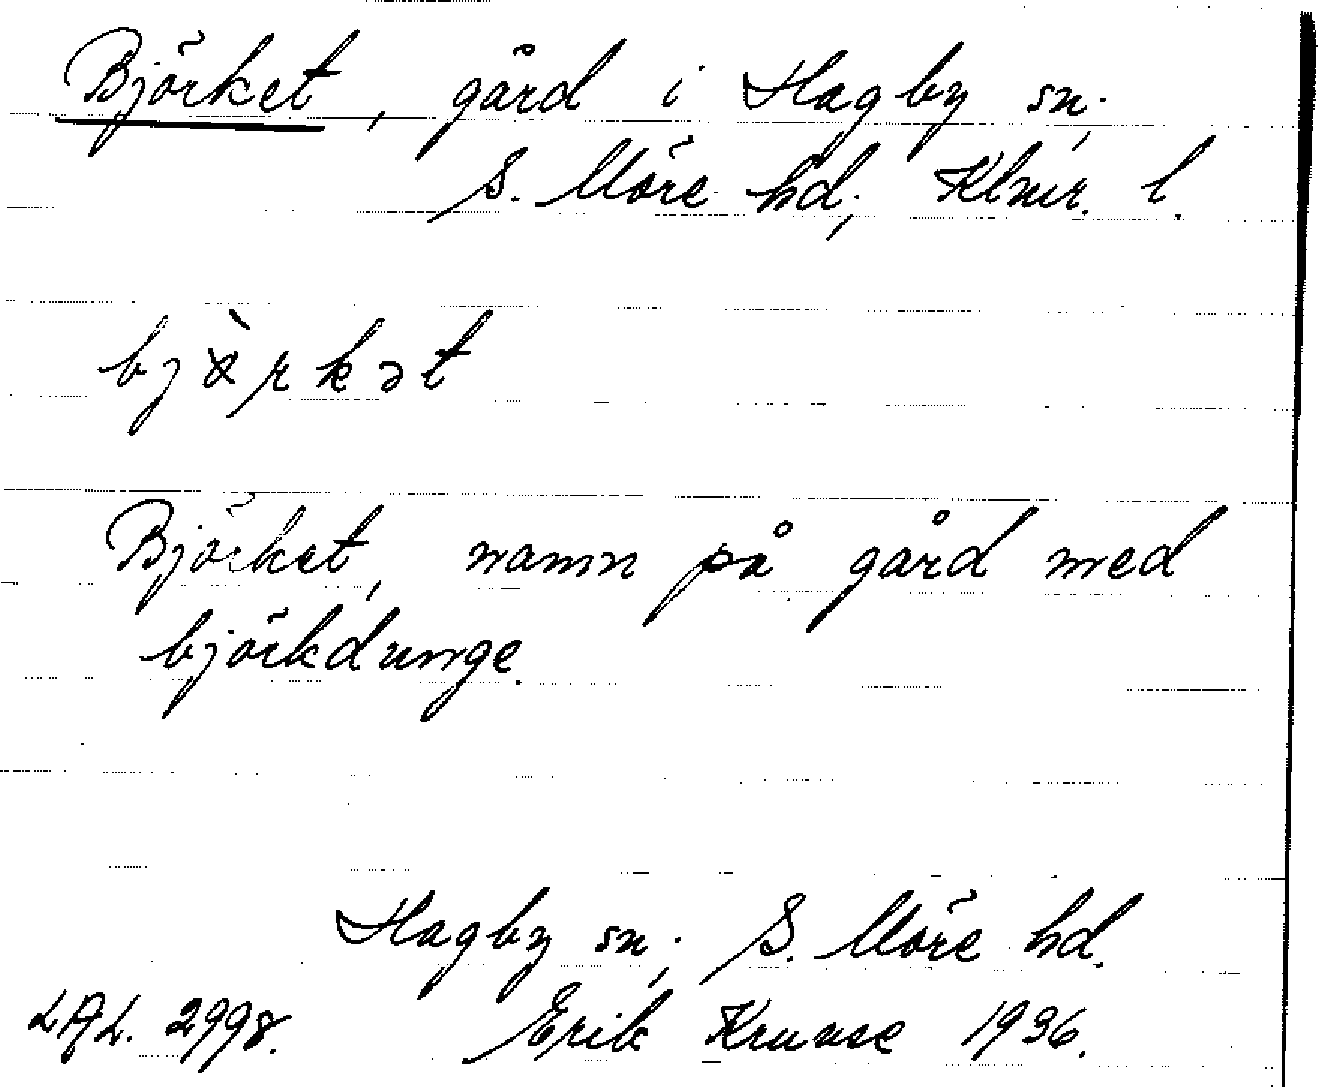 Björket, gård i Hagby sn;
S. Möre hd; Klmr. l.
bjɤ̀rkət
Björket, namn på gård med
björkdunge.
Hagby sn; S. Möre hd.
LAL. 2998. Erik Kruuse 1936.